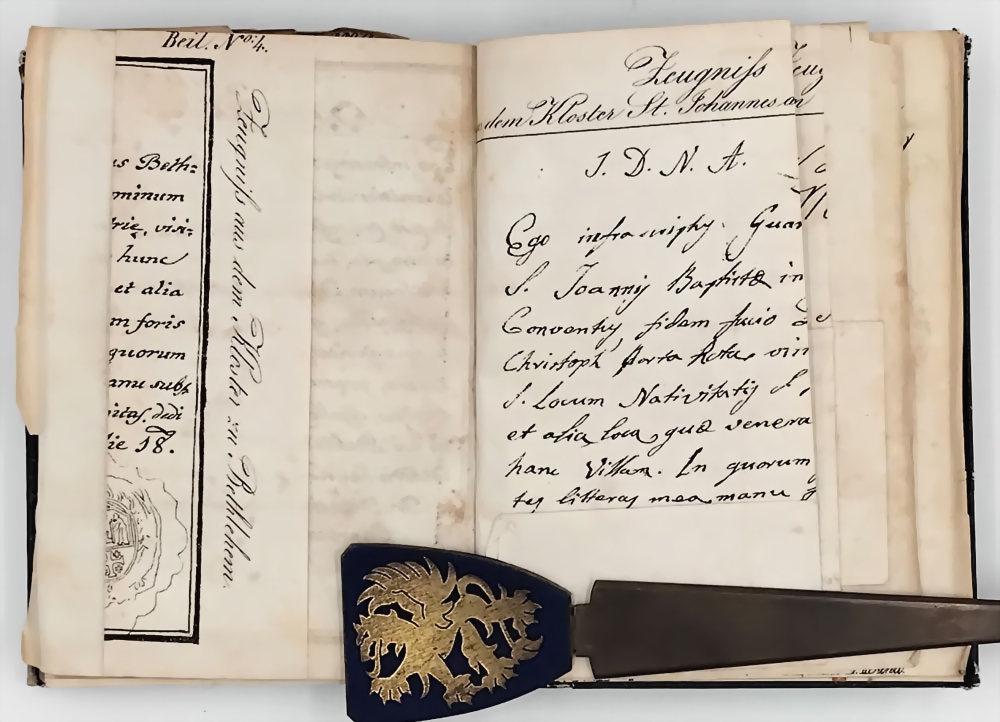 Beil. No: 4.
us Beth:
minum
trie, visi:
hunc
et alia
m foris
quorum
anu subs
dedi
die 18.
Zeugniss aus dem Kloster zu Bethlehem.
Zeugniss
dem Kloster St. Johannes
J. D. N. A.
Ego infrascriptg. Guar
S. Joannis Baptistæ in
Conventg, fidem facio
Christoph Porta Rota, vir
S. Locum Nativitatis S
et alia loca, quæ venera
hanc Villam. In quorum
tes litteras mea manu